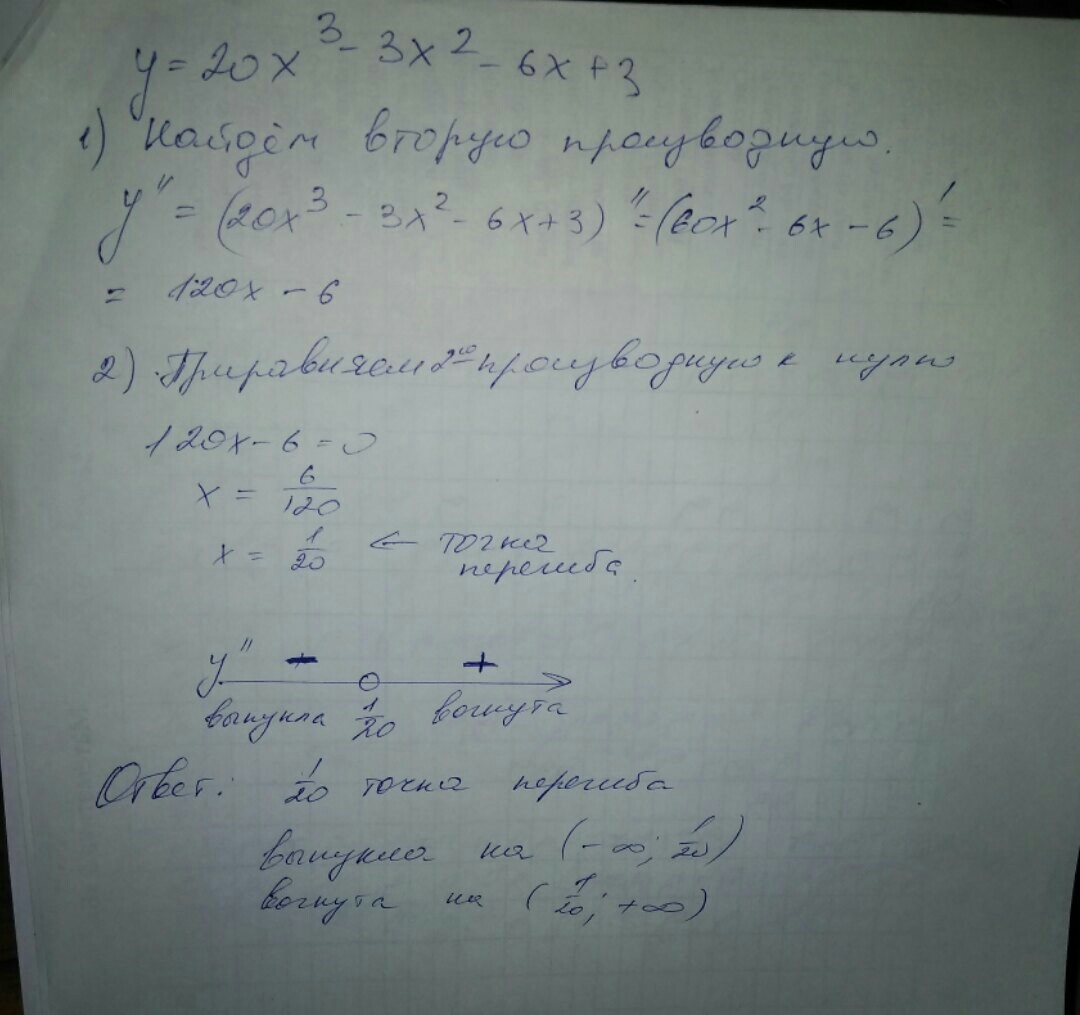 y = 20x³ - 3x² - 6x + 3
1) Найдём вторую производную.
y'' = (20x³ - 3x² - 6x + 3)'' = (60x² - 6x - 6)' =
= 120x - 6
2) Приравняем 2ую производную к нулю
120x - 6 = 0
x = 6/120
x = 1/20 ← точка
перегиба.
y'' − +
выпукла 1/20 вогнута
Ответ: 1/20 точка перегиба
выпукла на (-∞; 1/20)
вогнута на (1/20; +∞)